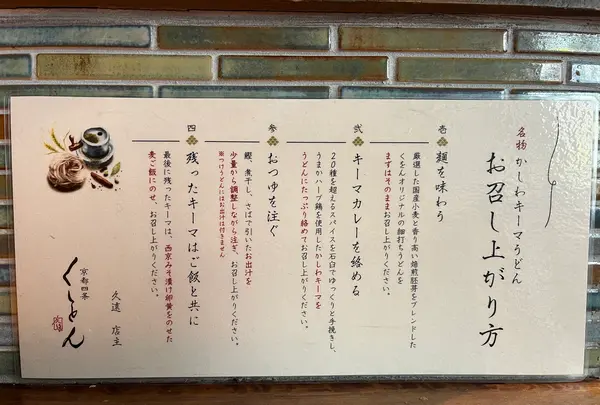 名物 かしわキーマうどん
お召し上がり方
壱
麺を味わう
厳選した国産小麦と香り高い焙煎胚芽をブレンドした
くをんオリジナルの細打ちうどんを
まずはそのままお召し上がりください。
弐
キーマカレーを絡める
20種を超えるスパイスを石臼でゆっくりと手挽きし、
うまかハーブ鶏を使用したかしわキーマを
うどんにたっぷり絡めてお召し上がりください。
参
おつゆを注ぐ
鰹、煮干し、さばで引いたお出汁を
少量から調整しながら注ぎ、お召し上がりください。
※つけうどんにはお出汁は付きません
四
残ったキーマはご飯と共に
最後に残ったキーマは、西京みそ漬け卵黄をのせた
麦ご飯にのせ、お召し上がりください。
京都四条
くをん
久遠 店主